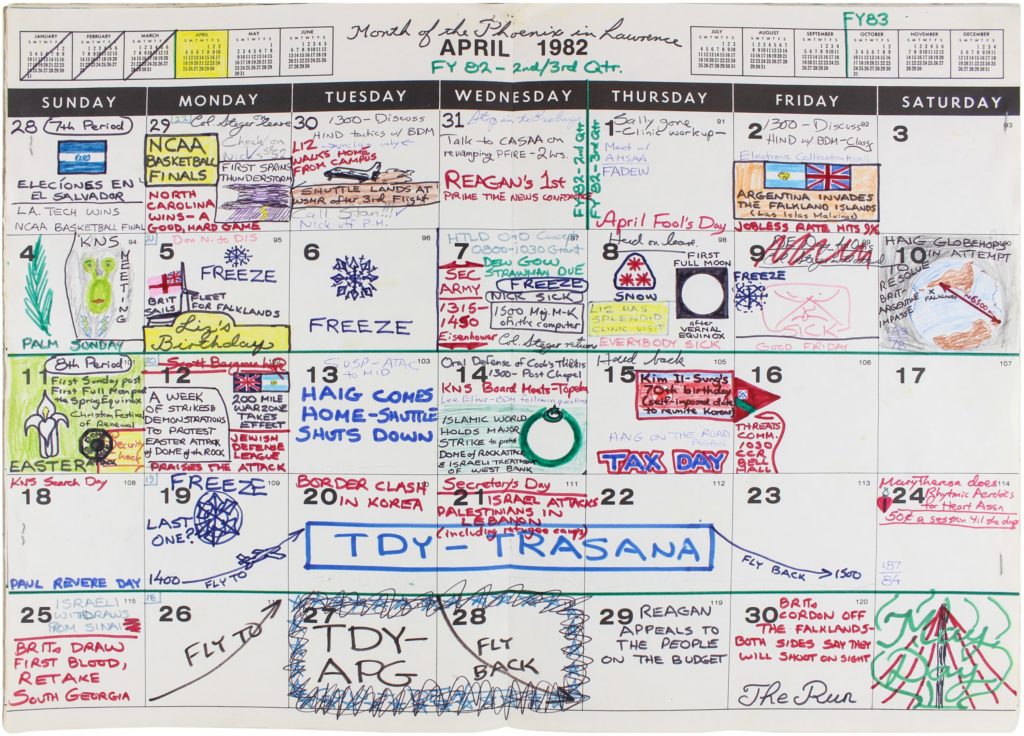 Month of the Phoenix in Lawrence
APRIL 1982
FY 82 - 2nd/3rd Qtr.
FY83
JANUARY
FEBRUARY
MARCH
APRIL
MAY
JUNE
JULY
AUGUST
SEPTEMBER
OCTOBER
NOVEMBER
DECEMBER
SUNDAY MONDAY TUESDAY WEDNESDAY THURSDAY FRIDAY SATURDAY
28 7th Period
ELECÍONES EN
EL SALVADOR
LA. TECH WINS
NCAA BASKETBALL FINAL
29
Col. Steger
Check on
NCAA
BASKETBALL
FINALS
FIRST SPRING
THUNDERSTORM
NORTH
CAROLINA
WINS - A
GOOD, HARD GAME
30 1300 - Discuss
HIND tactics w/ BDM
LIZ
WALKS HOME
FROM CAMPUS
SHUTTLE LANDS AT
WSMR after 3rd Flight
Call Stan!!!
Nick off P.H.
31
Talk to CASAA on
revamping PFIRE - 2 hrs.
REAGAN'S 1st
PRIME TIME NEWS CONFERENCE
FY 82 - 2nd Qtr
FY 82 - 3rd Qtr
1 Sally gone 91
- Clinic workup -
Meet w/
AMSAA
FADEW
April Fool's Day
2 1300 - Discuss 92
HIND w/ BDM - Class
ARGENTINA INVADES
THE FALKLAND ISLANDS
(Las Islas Malvinas)
JOBLESS RATE HITS 9%
3 93
4 KNS 94
MEETING
PALM SUNDAY
5 Don N. to DIS 95
FREEZE
BRIT
SAILS
FLEET
FOR FALKLANDS
Liz's
Birthday
6 96
FREEZE
7 HTLD O&O Concept 97
0800-1030 Grant
DEW GOW
STRAWMAN DUE
SEC
ARMY
1315-
1450
Eisenhower
FREEZE
NICK SICK
1500 Mtg M-K
on the computer
Col. Steger returns
8 Heard on leave. 98
SNOW
FIRST
FULL MOON
after
VERNAL
EQUINOX
LIZ HAS
SPLENDID
CLINIC VISIT
EVERYBODY SICK
9
FREEZE
GOOD FRIDAY
HAIG GLOBEHOPS
IN ATTEMPT
10
TO RESOLVE
BRIT-
ARGENTINE
IMPASSE
FALKLANDS
11 8th Period 101
First Sunday past
First Full Moon past
the Spring Equinox
Christian Festival
of Renewal
Security
Check
EASTER
12 Scott Bargman
A WEEK
OF STRIKES &
DEMONSTRATIONS
TO PROTEST
EASTER ATTACK
of DOME of the ROCK
200 MILE
WAR ZONE
TAKES
EFFECT
JEWISH
DEFENSE
LEAGUE
PRAISES THE ATTACK
13 103
HAIG COMES
HOME - SHUTTLE
SHUTS DOWN
14 Oral Defense of Cook's Thesis
1300 - Post Chapel
KNS Board Meets - Topeka
ISLAMIC WORLD
HOLDS MAJOR
STRIKE to protest
DOME of ROCK ATTACK
& ISRAELI TREATMENT
OF WEST BANK
15 Heard back 105
Kim Il-Sung's
70th birthday
(self-imposed date
to reunite Korea)
HAIG ON THE ROAD
AGAIN
TAX DAY
16 106
THREATS
COMM.
1030
CCR
BELL
HALL
17 107
KNS Search Day 108
18
PAUL REVERE DAY
19 FREEZE
LAST
ONE?
1400 FLY TO
20 BORDER CLASH
IN KOREA
Secretary's Day 111
21 ISRAEL ATTACKS
PALESTINIANS IN
LEBANON
(including refugee camps)
TDY - TRASANA
22 112
23 113
FLY BACK 1500
Mary Theresa does 114
24 Rhythmic Aerobics
for Heart Assn
50¢ a session 'til she drops
187
84
25 ISRAELI 115
WITHDRAWS
FROM SINAI
BRITs DRAW
FIRST BLOOD,
RETAKE
SOUTH GEORGIA
26
FLY TO
27
TDY -
APG
28
FLY
BACK
29 REAGAN 119
APPEALS TO
THE PEOPLE
ON THE BUDGET
30 BRITs 120
CORDON OFF
THE FALKLANDS -
BOTH SIDES SAY THEY
WILL SHOOT ON SIGHT
The Run
May
Day